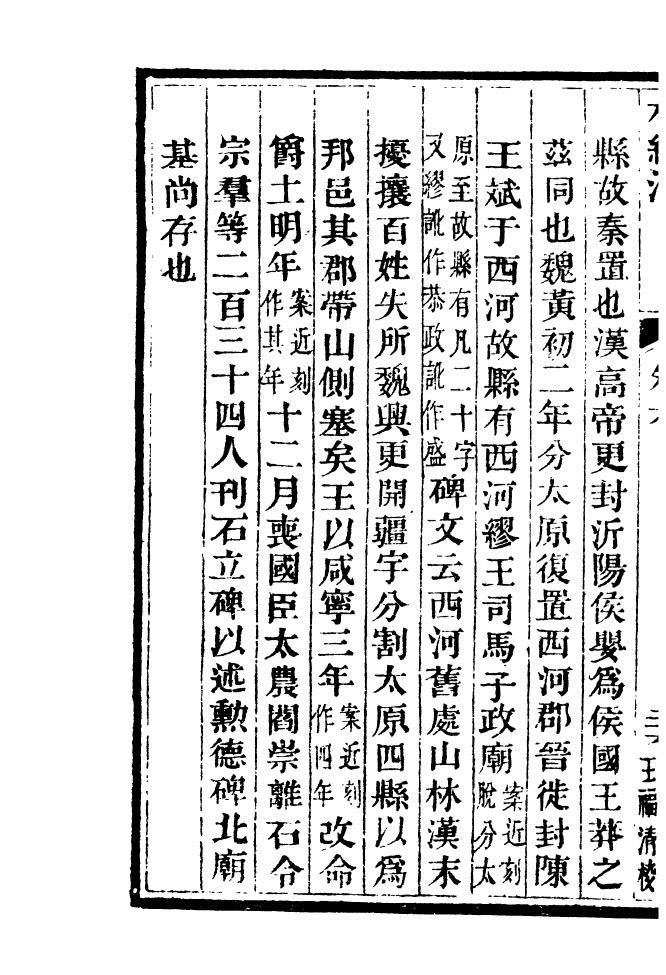 王福清校
縣故秦置也漢高帝更封沂陽侯嬰爲侯國王莽之
茲同也魏黃初二年分太原復置西河郡晉徙封陳
王斌于西河故縣有西河繆王司馬子政廟案近刻脫分太
原至故縣有凡二十字又繆訛作恭政訛作盛碑文云西河舊處山林漢末
擾攘百姓失所魏興更開疆宇分割太原四縣以爲
邦邑其郡帶山側塞矣王以咸寧三年案近刻作四年改命
爵土明年案近刻作其年十二月喪國臣太農閻崇離石令
宗羣等二百三十四人刊石立碑以述勳德碑北廟
基尚存也